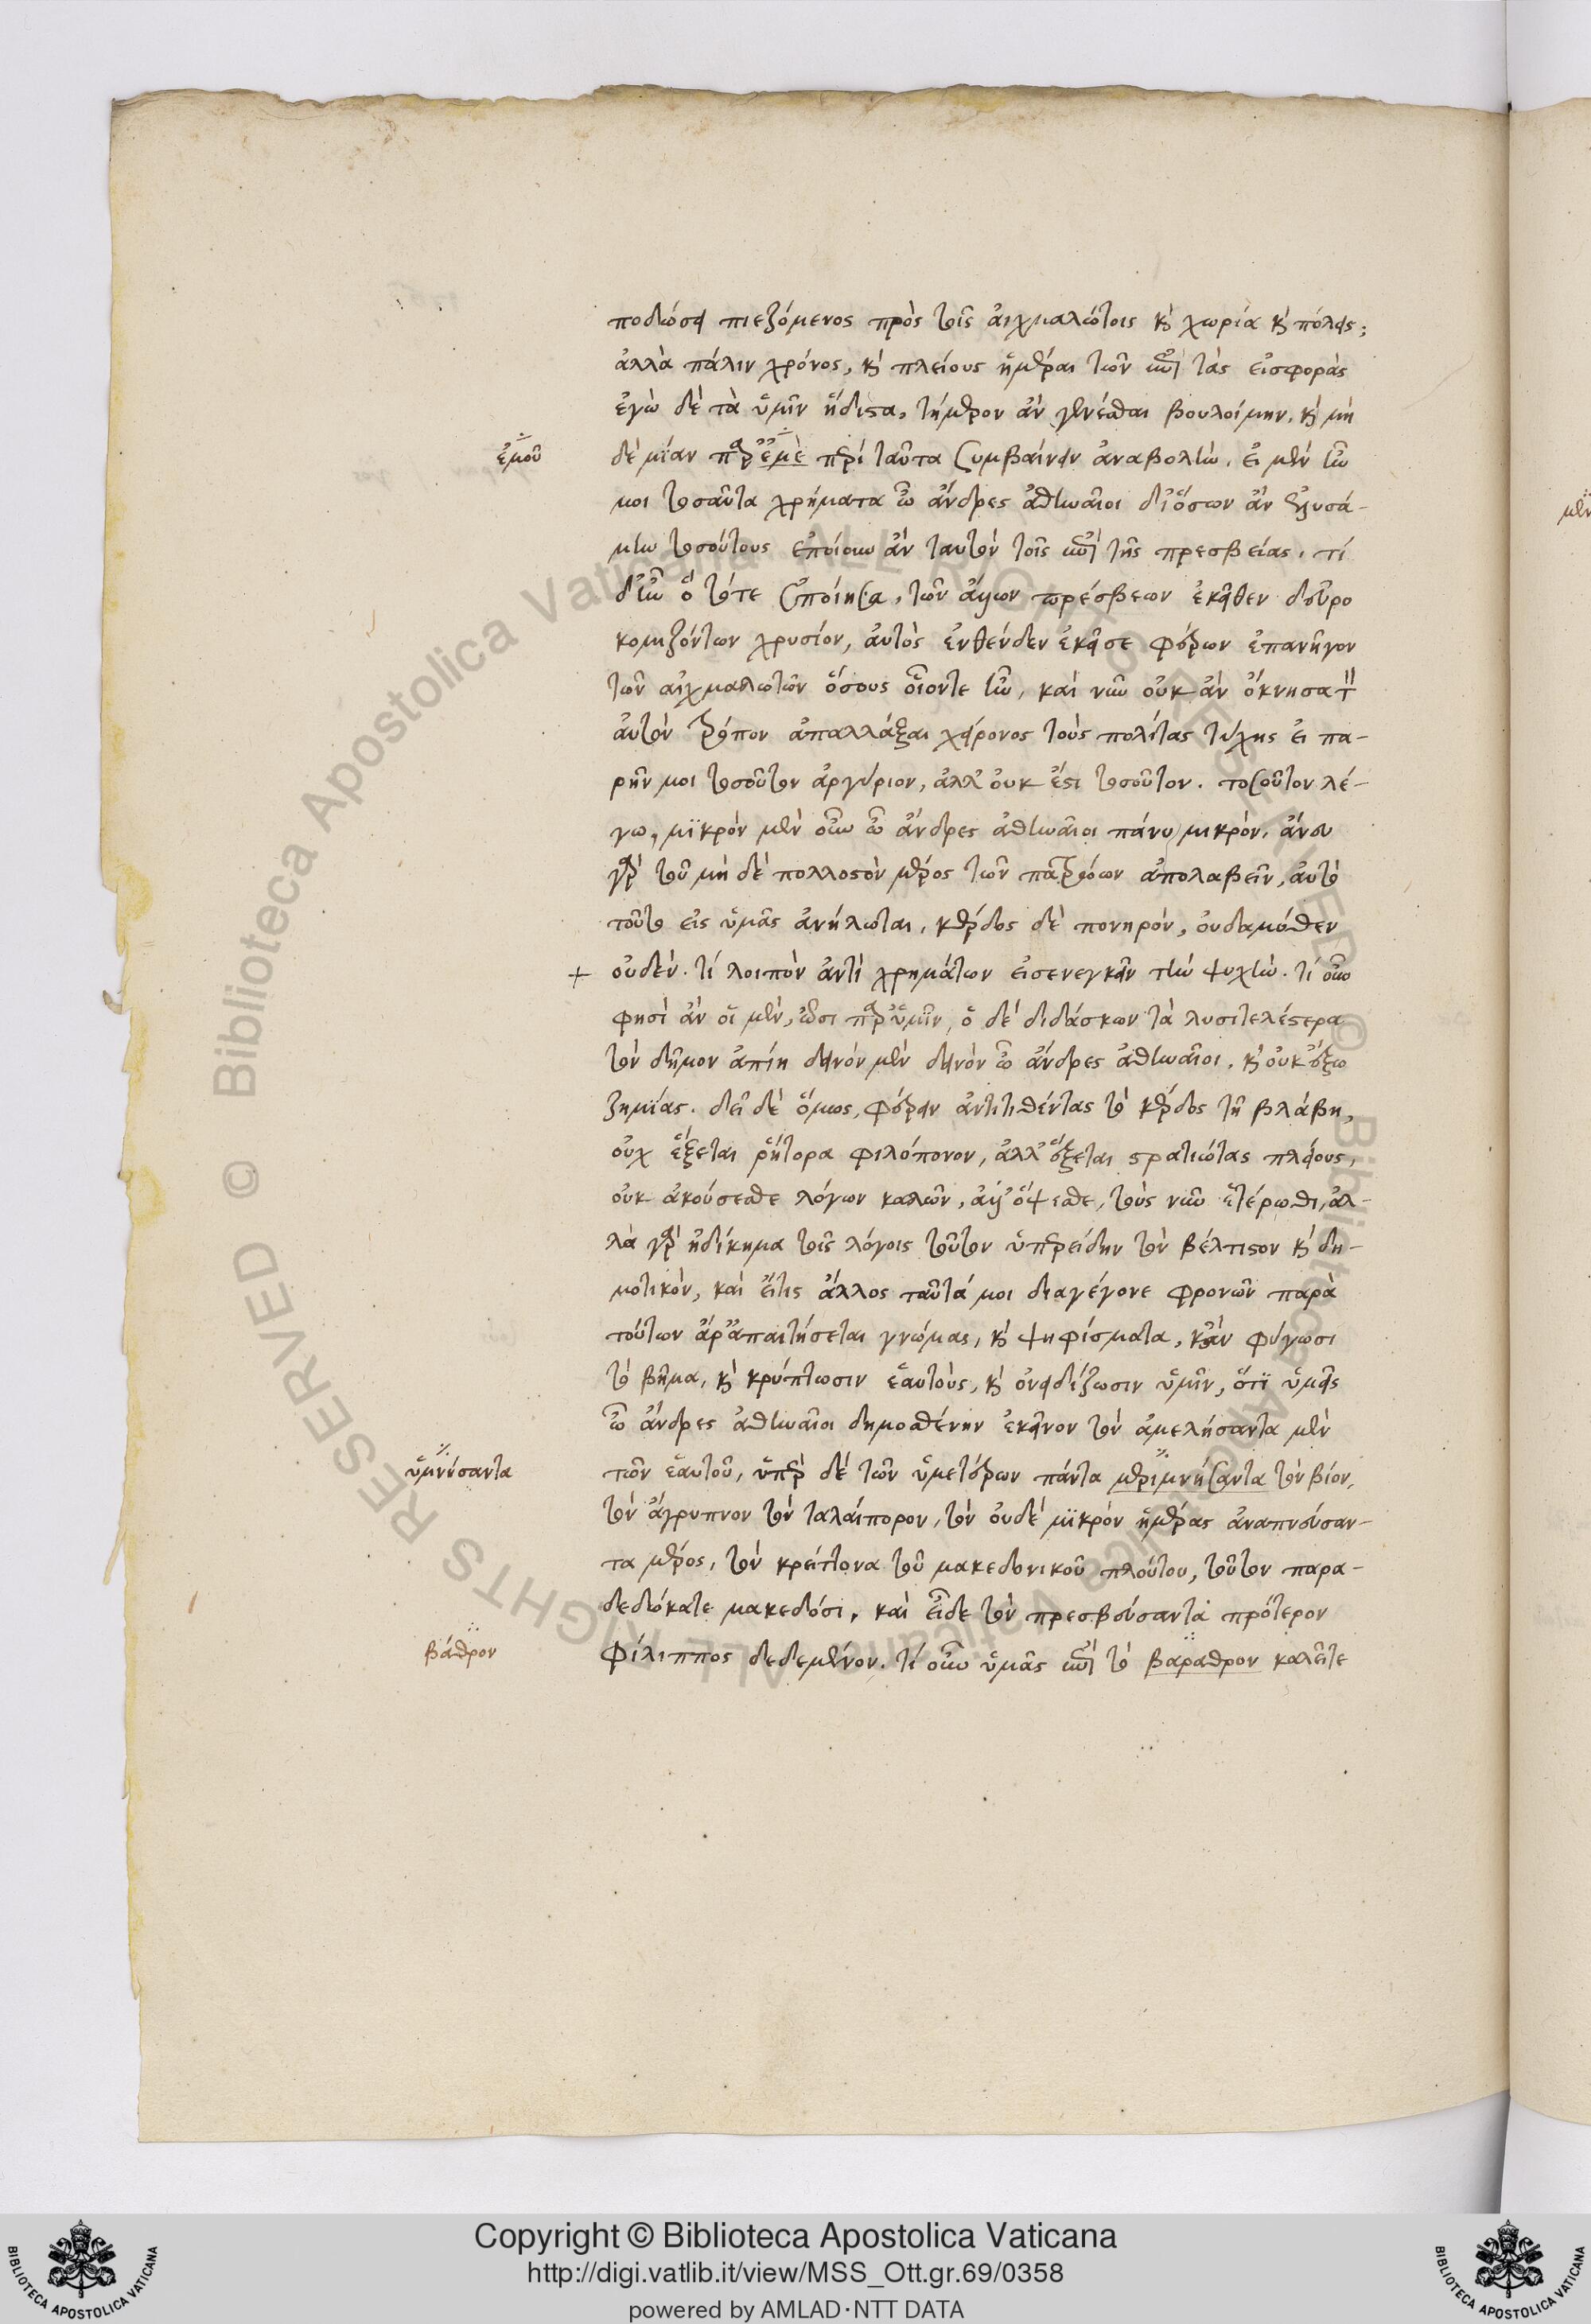 ποδώσει πιεζόμενος πρὸς τοῖς αἰχμαλώτοις καὶ χωρία καὶ πόλεις;
ἀλλὰ πάλιν χρόνος, καὶ πλείους ἡμέραι τῶν ἐπὶ τὰς εἰσφορὰς
ἐγὼ δὲ τὰ ὑμῖν ἥδιστα, τήμερον ἂν γενέσθαι βουλοίμην. καὶ μη
ἐμοῦ
δὲ μίαν παρ' ἐμὲ περὶ ταῦτα συμβαίνειν ἀναβολήν. εἰ μὲν ἦν
μοι τοσαῦτα χρήματα ὦ ἄνδρες ἀθηναῖοι δι' ὅσων ἂν ἐλυσά-
μην τοσούτους ἐποίουν ἂν ταυτὸν τοῖς ἐπὶ τῆς πρεσβείας. τί
δ' ἦν ὃ τότε ἐποίησα, τῶν ἄλλων πρέσβεων ἐκεῖθεν δεῦρο
κομιζόντων χρυσίον, αὐτὸς ἐνθένδεν ἐκεῖσε φέρων ἐπανῆγον
τῶν αἰχμαλωτῶν ὅσους οἷόντε ἦν, καὶ νῦν οὐκ ἂν ὄκνησα τὸν
αὐτὸν τρόπον ἀπαλλάξαι χείρονος τοὺς πολίτας τύχης εἰ πα-
ρῆν μοι τοσοῦτον ἀργύριον, ἀλλ' οὐκ ἔστι τοσοῦτον. τοσοῦτον λέ-
γω, μϊκρὸν μὲν οὖν ὦ ἄνδρες ἀθηναῖοι πάνυ μικρόν. ἄνευ
γὰρ τοῦ μὴ δὲ πολλοστὸν μέρος τῶν πατρῴων ἀπολαβεῖν, αὐτὸ
τοῦτο εἰς ὑμᾶς ἀνήλωται, κέρδος δὲ πονηρόν, οὐδαμόθεν
+ οὐδέν. τί λοιπὸν ἀντὶ χρημάτων εἰσενεγκεῖν τὴν ψυχήν. τί οὖν
φησὶ ἂν οἱ μὲν, ὦσι παρ' ὑμῖν, ὁ δὲ διδάσκων τὰ λυσιτελέστερα
τὸν δῆμον ἀπίη δεινὸν μὲν δεινὸν ὦ ἄνδρες ἀθηναῖοι. καὶ οὐκ ἔξω
ζημίας. δεῖ δὲ ὅμως, φέρειν ἀντιτιθέντας τὸ κέρδος τῇ βλάβῃ,
οὐχ ἕξεται ῥήτορα φιλόπονον, ἀλλ' ἕξεται στρατιώτας πλείους,
οὐκ ἀκούσεσθε λόγων καλῶν, ἀλλ' ὄψεσθε, τοὺς νῦν ἑτέρωθι, ἀλ-
λὰ γὰρ ἠδίκημα τοῖς λόγοις τοῦτον ὑπερείδην τὸν βέλτιστον καὶ δη-
μοτικόν, καὶ εἴτις ἄλλος ταῦτά μοι διαγέγονε φρονῶν παρὰ
τούτων ἄρ' ἀπαιτήσεται γνώμας, καὶ ψηφίσματα, κἂν φύγωσι
τὸ βῆμα, καὶ κρύπτωσιν ἑαυτούς, καὶ ὀνειδίζωσιν ὑμῖν, ὅτϊ ὑμεῖς
ὦ ἄνδρες ἀθηναῖοι δημοσθένην ἐκεῖνον τὸν ἀμελήσαντα μὲν
ὑμνήσαντα
τῶν ἑαυτοῦ, ὑπὲρ δὲ τῶν ὑμετέρων πάντα μεριμνήσαντα τὸν βίον,
τὸν ἄγρυπνον τὸν ταλαίπορον, τὸν οὐδὲ μϊκρὸν ἡμέρας ἀναπνεύσαν-
τα μέρος, τὸν κρείττονα τοῦ μακεδονικοῦ πλούτου, τοῦτον παρα-
δεδώκατε μακεδόσι. καὶ εἶδε τὸν πρεσβεύσαντα πρότερον
βάθρον
Φίλιππος δεδεμένον. τί οὖν ὑμᾶς ἐπὶ τὸ βάραθρον καλεῖτε
Copyright © Biblioteca Apostolica Vaticana
http://digi.vatlib.it/view/MSS_Ott.gr.69/0358
powered by AMLAD·NTT DATA